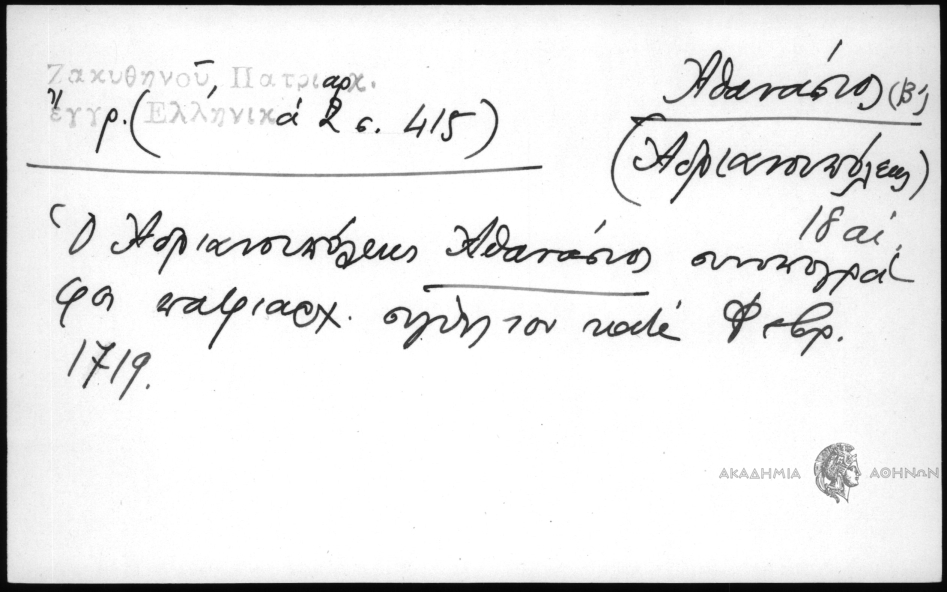 Ζακυθηνοῦ, Πατριαρχ.
ἔγγρ. (Ἑλληνικά 2 σ. 415)
Ἀθανάσιος (β')
(Ἀδριανουπόλεως)
18 αἰ.
Ὁ Ἀδριανουπόλεως Ἀθανάσιος συνυπογρά
φει πατριαρχ. τον κατά Φεβρ.
1719.
ΑΚΑΔΗΜΙΑ ΑΘΗΝΩΝ